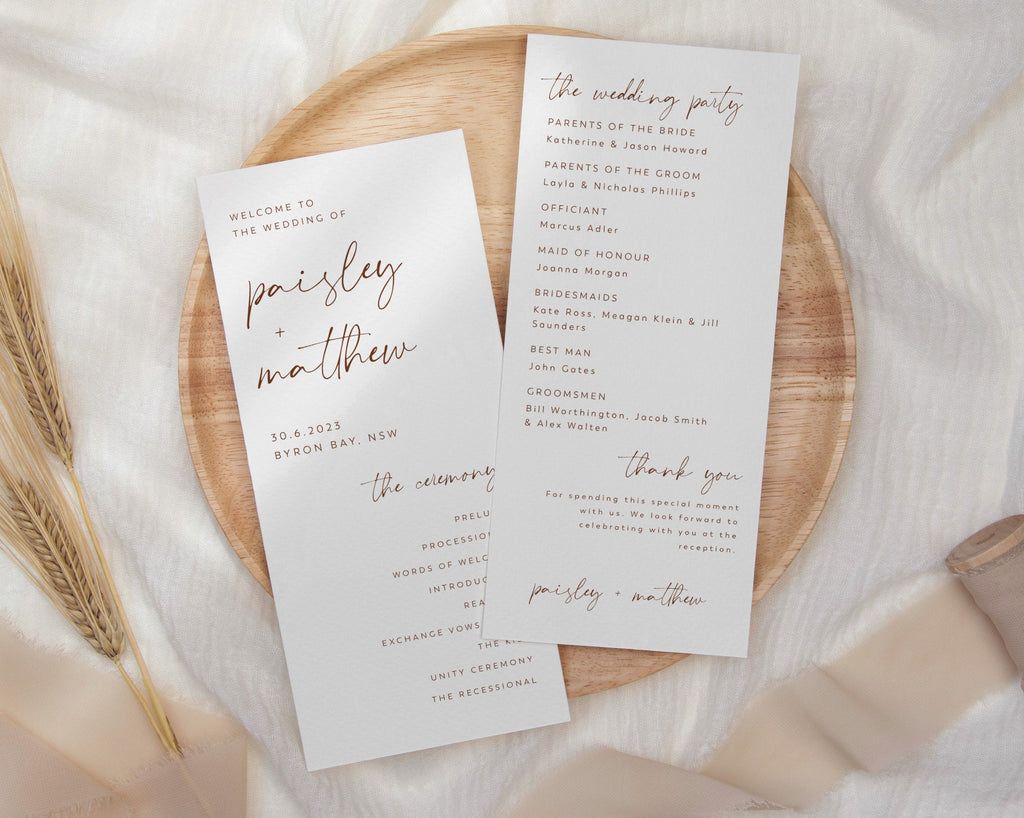 WELCOME TO
THE WEDDING OF
paisley
+
matthew
30.6.2023
BYRON BAY, NSW
the ceremony
WORDS OF
EXCHANGE VOWS
THE
UNITY CEREMONY
THE RECESSIONAL
the wedding party
PARENTS OF THE BRIDE
Katherine & Jason Howard
PARENTS OF THE GROOM
Layla & Nicholas Phillips
OFFICIANT
Marcus Adler
MAID OF HONOUR
Joanna Morgan
BRIDESMAIDS
Kate Ross, Meagan Klein & Jill
Saunders
BEST MAN
John Gates
GROOMSMEN
Bill Worthington, Jacob Smith
& Alex Walten
thank you
For spending this special moment
with us. We look forward to
celebrating with you at the
reception.
paisley + matthew